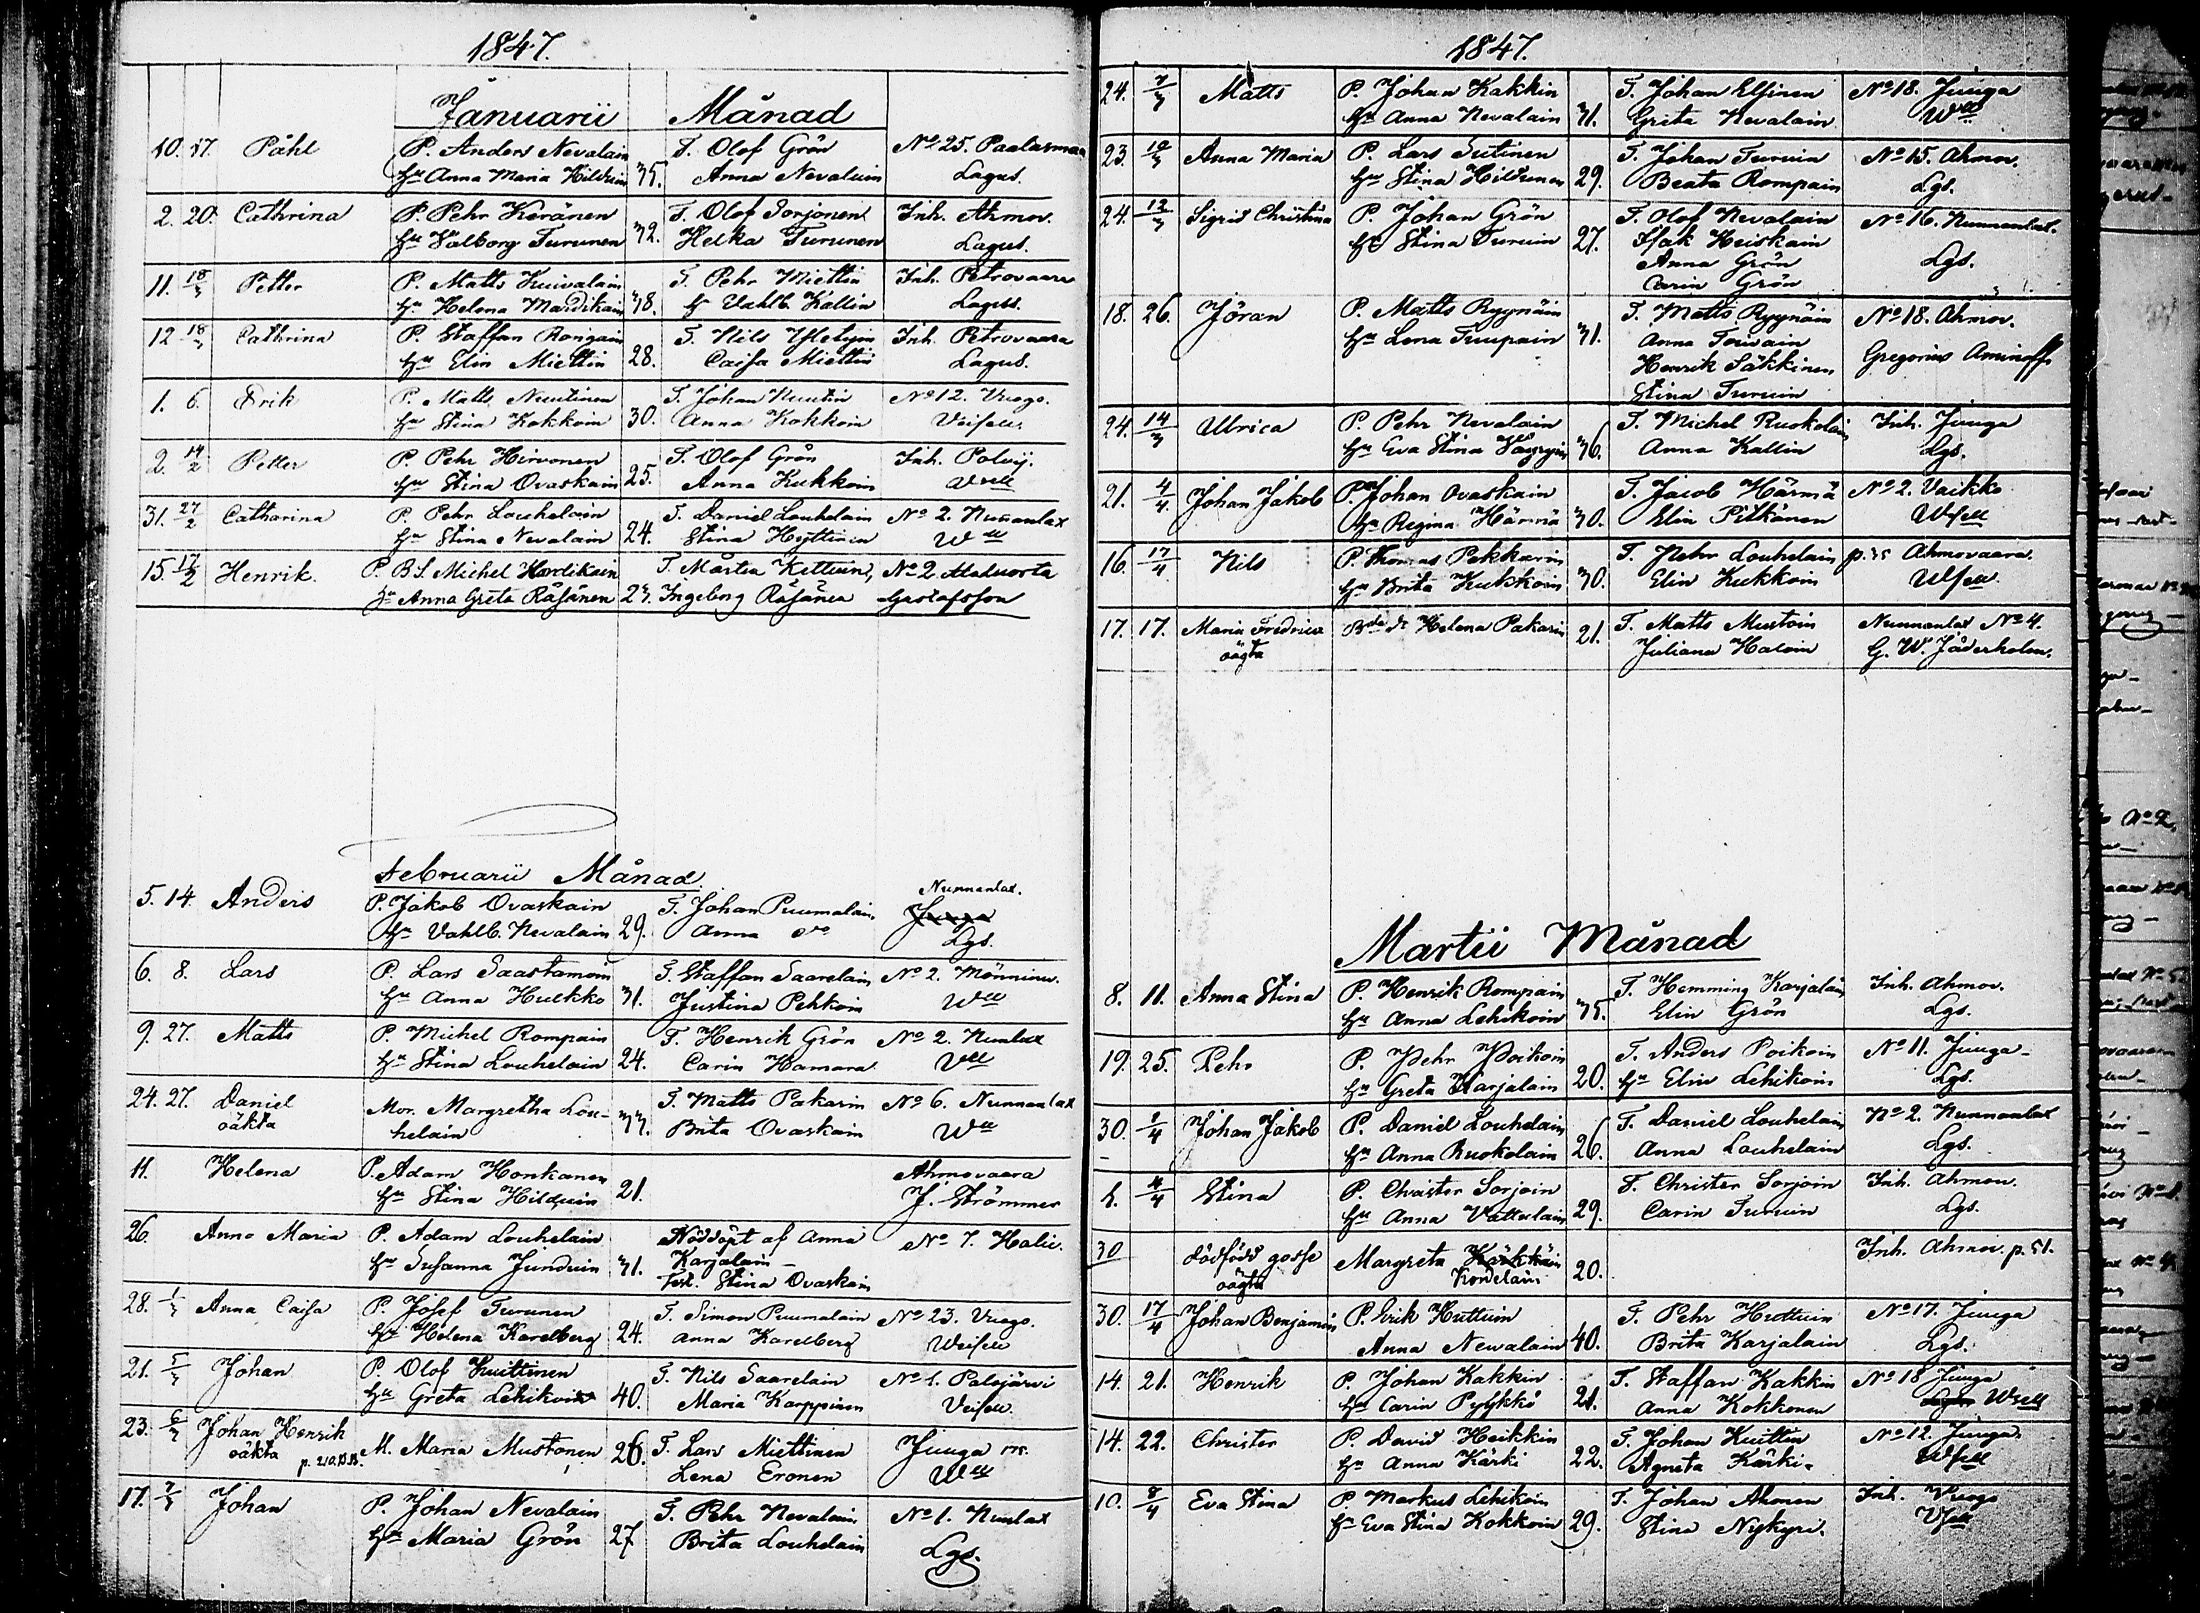 1847.
Januarii Månad
10. 17. Påhl P. Anders Nevalain 35. T. Olof Grön No 25. Paalasmaa
hu Anna Maria Hilduin Anna Nevaluin Lagus.
2. 20. Cathrina P. Pehr Keränen 32. T. Olof Sorjonen Inh. Ahmov.
hu Valborg Turunen Helka Turunen Lagus.
11. 18/3 Petter P. Matts Kuivalain 38. T. Pehr Miettin Inh. Petrovaara
hu Helena Mardikain hu Vahlb. Kallin Laguss.
12 18/3 Cathrina P. Staffan Rongain 28. T. Nils Inh. Petrovaara
hu Elin Miettin Caisa Miettin Lagus.
1. 6. Erik P. Matts Nuutinen 30. T. Johan Nuutin No 12. Vuogo.
hu Stina Kokkoin Anna Kokkoin Veisell.
2. 14/2 Petter P. Pehr Hirvonen 25. T. Olof Grön Inh. Polvij.
hu Stina Ovaskain Anna Kukkoin Wsell
31. 27/2 Catharina P. Pehr Louhelain 24. T. Daniel Louhelain No 2. Nunanlax
hu Stina Nevalain Stina Hyttinen Wll
15. 17/2 Henrik. P. B.S. Michel Hardikain 23. T. Mårten Kettuin, No 2. Alaluosta
hu Anna Greta Räsänen Ingeborg Räsänen Gustafsson
Februarii Månad.
5. 14. Anders P. Jakob Ovaskain 29. T. Johan Puumalain, Nunnanlax. Juuga
hu Vahlb. Nevalain Anna do Lgs.
6. 8. Lars P. Lars Saastamoin 31. T. Staffan Saarelain No 2. Mönninv.
hu Anna Hulkko Justina Pehkoin Wll
9. 27. Matts P. Michel Rompain 24. T. Henrik Grön No 2. Nunlax
hu Stina Louhelain Carin Hamara Vll
24. 27. Daniel Mor. Margretha Lou- 33. T. Matts Pakarin No 6. Nunnanlax
oäkta helain Brita Ovaskain Wll
11. Helena P. Adam Honkanen 21. Ahmovaara
hu Stina Hilduin J. Strömmer
26. Anna Maria P. Adam Louhelain 31. Nöddöpt af Anna No 7. Halie.
hu Susanna Junduin Karjalain –
Test. Stina Ovaskain
28. 1/3 Anna Caisa P. Josef Turunen 24. T. Simon Puumalain No 23. Vuogo.
hu Helena Karelberg Anna Karelberg Weisell
21. 5/3 Johan P. Olof Kuittinen 40. T. Nils Saarelain No 1. Polvjärvi
hu Greta Lehikoin Maria Karppinen Veisell.
23. 6/3 Johan Henrik M. Maria Mustonen 26. T. Lars Miettinen Juuga
oäkta p. 210.B.B. Lena Eronen Wll
17. 7/3 Johan P. Johan Nevalain 27 T. Pehr Nevalain No 1. Nunlax
hu Maria Grön Brita Louhelain Lgs.
1847.
24. 7/3 Matts P. Johan Kakkin 31. T. Johan Elfinen No 18. Juuga
hu Anna Nevalain Greta Nevalain Wll
23. 10/3 Anna Maria P. Lars Sutinen 29. T. Johan Turuin No 15. Ahmov.
hu Stina Hildunen Beata Rompain Lgs.
24. 12/3 Sigrid Christina P. Johan Grön 27. T. Olof Nevalain No 16. Nunnanlax.
hu Stina Turuin Isak Heiskain
Anna Grön Lgs.
Carin Grön
18. 26. Jöran P. Matts Ryynäin 31. T. Matts Ryynäin No 18. Ahmov.
hu Lena Tuupain Anna Toivain
Henrik Säkkinen Gregorius Aminoff
Stina Turuin
24. 14/3 Ulrica P. Pehr Nevalain 36. T. Michel Ruokolain Inh. Juuga
hu Eva Stina Väyryin Anna Kallin Lgs.
21. 4/4 Johan Jakob P. Johan Ovaskain 30. T. Jacob Härmä No 2. Vaikko
hu Regina Härmä Elin Pitkänen Wsell
16. 17/4 Nils P. Thomas Pekkarin 30. T. Pehr Louhelain p. 35 Ahmovaara.
hu Brita Kukkoin Elin Kukkoin Wsell
17. 17. Maria Fredrica Bde dr Helena Pakarin 21. T. Matts Mustoin Nunnanlax No 4.
oägta Juliana Haloin G. W. Jäderholm.
Martii Månad
8. 11. Anna Stina P. Henrik Rompain 35. T. Hemming Karjalain Inh. Ahmov.
hu Anna Lehikoin Elin Grön Lgs.
19. 25. Pehr P. Pehr Poikoin 20. T. Anders Poikoin No 11. Juuga
hu Greta Karjalain hu Elin Lehikoin Lgs.
30. 1/4 Johan Jakob P. Daniel Louhelain 26. T. Daniel Louhelain No 2. Nunnanlax
hu Anna Ruokolain Anna Louhelain Lgs.
2. 4/4 Stina P. Christer Sorjoin 29. T. Christer Sorjoin Inh. Ahmov.
hu Anna Vattulain Carin Turuin Lgs.
30 dödfödd gosse Margreta Kärkkäin 20. Inh. Ahmov. p. 51.
oägta
30. 17/4 Johan Benjamin P. Erik Huttuin 40. T. Pehr Huttuin No 17. Juuga
Anna Nevalain Brita Karjalain Lgs.
14. 21. Henrik P. Johan Kakkin 21. T. Staffan Kakkin No 18 Juuga
hu Carin Pylykkö Anna Kokkonen Wsell
14. 22. Christer P. David Heikkin 22. T. Johan Kuittin No 12. Juuga.
hu Anna Kärki Agneta Kärki. Wsell
10. 8/4 Eva Stina P. Markus Lehikoin 29. T. Johan Ahonen Inh. Vuogo
hu Eva Stina Kokkoin Stina Nykyri. Vsell